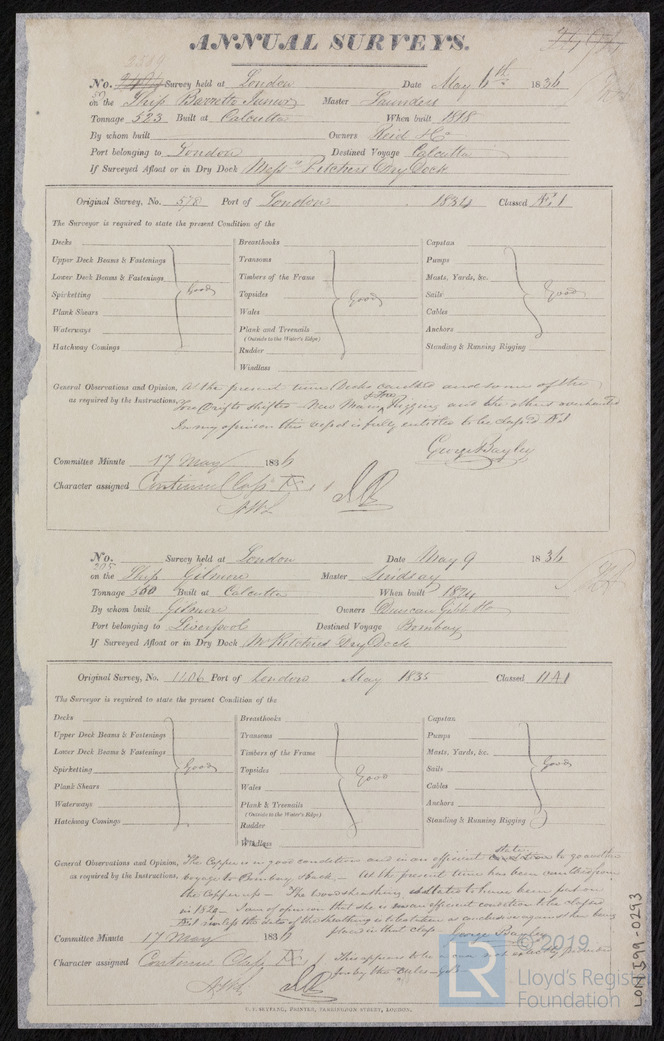 ANNUAL SURVEYS.
2319
No. Survey held at London Date May 6th 1836
on the Ship Barretto Junior Master Saunders
Tonnage 523 Built at Calcutta When built 1818
By whom built Owners Reid & Co
Port belonging to London Destined Voyage Calcutta
If Surveyed Afloat or in Dry Dock Messrs Pitchers Dry Dock
Original Survey, No. 578 Port of London 1834 Classed Æ 1
The Surveyor is required to state the present Condition of the
Decks Breasthooks Capstan
Upper Deck Beams & Fastenings Transoms Pumps
Lower Deck Beams & Fastenings Timbers of the Frame Masts, Yards, &c.
Spirketting Good Topsides Good Sails Good
Plank Shears Wales Cables
Waterways Plank and Treenails Anchors
(Outside to the Water's Edge)
Hatchway Comings Rudder Standing & Running Rigging
Windlass
General Observations and Opinion, At the present time Decks caulked and some of the
as required by the Instructions, shifted - New Main & Fore Rigging and the others overhauled
In my opinion this vessel is fully entitled to be classed Æ 1
George Bayley
Committee Minute 17 May 1836
Character assigned Continued Class Æ 1
No. Survey held at London Date May 9 1836
205
on the Ship Gilmore Master Lindsay
Tonnage 500 Built at Calcutta When built 1824
By whom built Gilmore Owners Duncan Gibb & Co
Port belonging to Liverpool Destined Voyage Bombay
If Surveyed Afloat or in Dry Dock Mr Pitchers Dry Dock
Original Survey, No. 1106 Port of London May 1835 Classed Æ 1
The Surveyor is required to state the present Condition of the
Decks Breasthooks Capstan
Upper Deck Beams & Fastenings Transoms Pumps
Lower Deck Beams & Fastenings Timbers of the Frame Masts, Yards, &c.
Spirketting Good Topsides Good Sails Good
Plank Shears Wales Cables
Waterways Plank & Treenails Anchors
(Outside to the Water's Edge)
Hatchway Comings Rudder Standing & Running Rigging
Windlass
General Observations and Opinion, The Copper is in good condition and in an efficient state to go another
as required by the Instructions, voyage to Bombay & back - At the present time has been caulked from
the copper up - The wood sheathing is stated to have been put on
in 1829 - I am of opinion that she is in an efficient condition to be classed
Æ 1 unless the date of the sheathing is to be taken as conclusive against her being
placed in that class George Bayley
Committee Minute 17 May 1836
Character assigned Continue Class Æ
This appears to be a case not exactly provided
for by the Rules - GB
PRINTER, FARRINGDON STREET, LONDON.
© 2019
LR
Lloyd's Register
Foundation
LON 599-0293